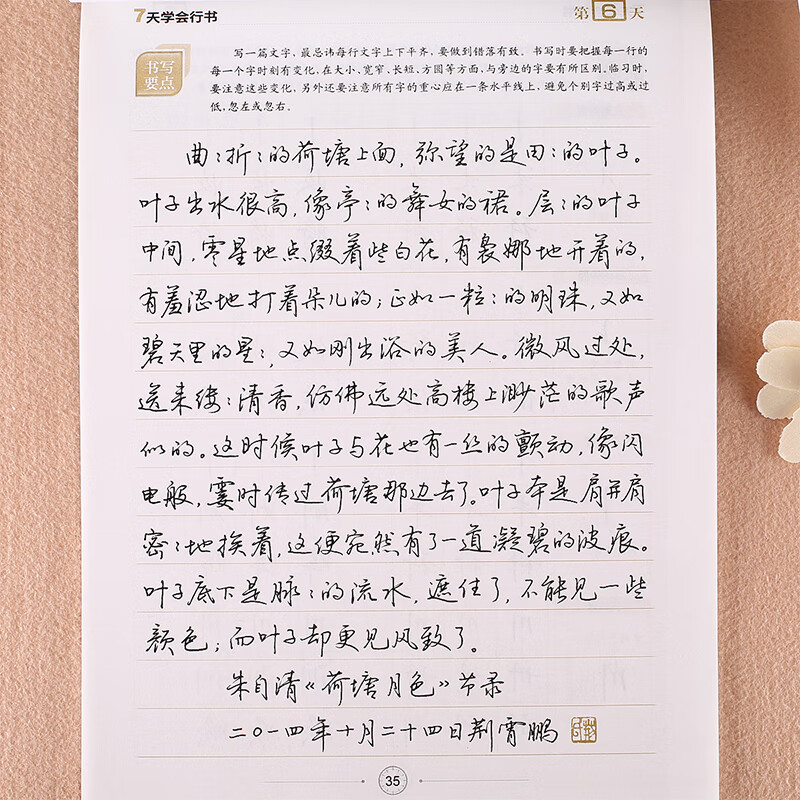 7天学会行书
第6天
书写要点
写一篇文字，最忌讳每行文字上下平齐，要做到错落有致。书写时要把握每一行的
每一个字时刻有变化，在大小、宽窄、长短、方圆等方面，与旁边的字要有所区别。临习时，
要注意这些变化，另外还要注意所有字的重心应在一条水平线上，避免个别字过高或过
低，忽左或忽右。
曲：折：的荷塘上面，弥望的是田：的叶子。
叶子出水很高，像亭：的舞女的裙。层：的叶子
中间，零星地点缀着些白花，有袅娜地开着的，
有羞涩地打着朵儿的；正如一粒：的明珠，又如
碧天里的星：，又如刚出浴的美人。微风过处，
送来缕：清香，仿佛远处高楼上渺茫的歌声
似的。这时候叶子与花也有一丝的颤动，像闪
电般，霎时传过荷塘那边去了。叶子本是肩并肩
密：地挨着，这便宛然有了一道凝碧的波痕。
叶子底下是脉：的流水，遮住了，不能见一些
颜色；而叶子却更见风致了。
朱自清《荷塘月色》节录
二〇一四年十月二十四日荆霄鹏
35